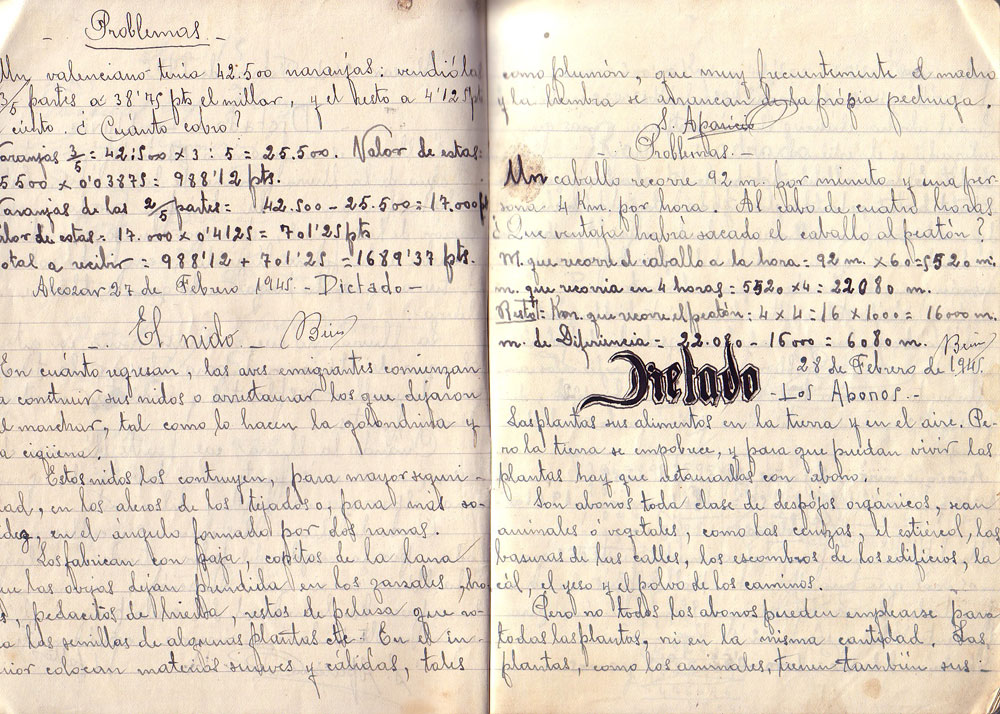 - Problemas -
Un valenciano tenia 42.500 naranjas: vendió las
3/5 partes a 38'75 pts el millar, y el resto a 4'125 pts
ciento. ¿Cuánto cobro?
aranjas 3/5 = 42.500 x 3 : 5 = 25.500. Valor de estas:
5 500 x 0'03875 = 988'12 pts.
aranjas de las 2/5 partes = 42.500 - 25.500 = 17.000
alor de estas = 17.000 x 0'4125 = 701'25 pts
otal a recibir = 988'12 + 701'25 = 1689'37 pts.
Alcozar 27 de Febrero 1945 - Dictado -
- El nido - Bien
En cuánto regresan, las aves emigrantes comienzan
a construir sus nidos o arrestaurar los que dejaron
al marchar, tal como lo hacen la golondrina y
a cigüena.
Estos nidos los contruyen, para mayor seguri-
dad, en los aleros de los tejados o, para más so-
lidez, en el ángulo formado por dos ramas.
Los fabrican con paja, copitos de la lana
que las obejas dejan prendida en los zarzales, ho-
s, pedacitos de hierba, restos de pelusa que ro-
a las semillas de algunas plantas etc - En el in-
rior colocan materias suaves y cálidas, tales
como plumón, que muy frecuentemente el macho
y la hembra se arrancan de la própia pechuga.
S. Aparicio
Problemas. -
Un caballo recorre 92 m. por minuto y una per-
sona 4 Km. por hora. Al cabo de cuatro horas
¿Que ventaja habrá sacado el caballo al peatón?
M. que recorre el caballo a la hora = 92 m. x 60 = 5520 m.
m. que recorria en 4 horas = 5520 x 4 = 22080 m.
Km. que recorre el peatón: 4 x 4 = 16 x 1000 = 16000 m.
m. de Diferiencia = 22.080 - 16000 = 6080 m. Bien
28 de Febrero de 1945.
Dictado - Los Abonos. -
Las plantas sus alimentos en la tierra y en el aire. Pe-
ro la tierra se empobrece, y para que puedan vivir las
plantas hay que con abono.
Son abonos toda clase de despójos orgánicos, sean
animales ó vegetales, como las cenizas, el estiércol, las
basuras de las calles, los escombros de los edificios, la
cál, el yeso y el polvo de los caminos.
Pero no todos los abonos pueden emplearse para
todas las plantas, ni en la misma cantidad. Las
plantas, como los animales, tienen también sus -